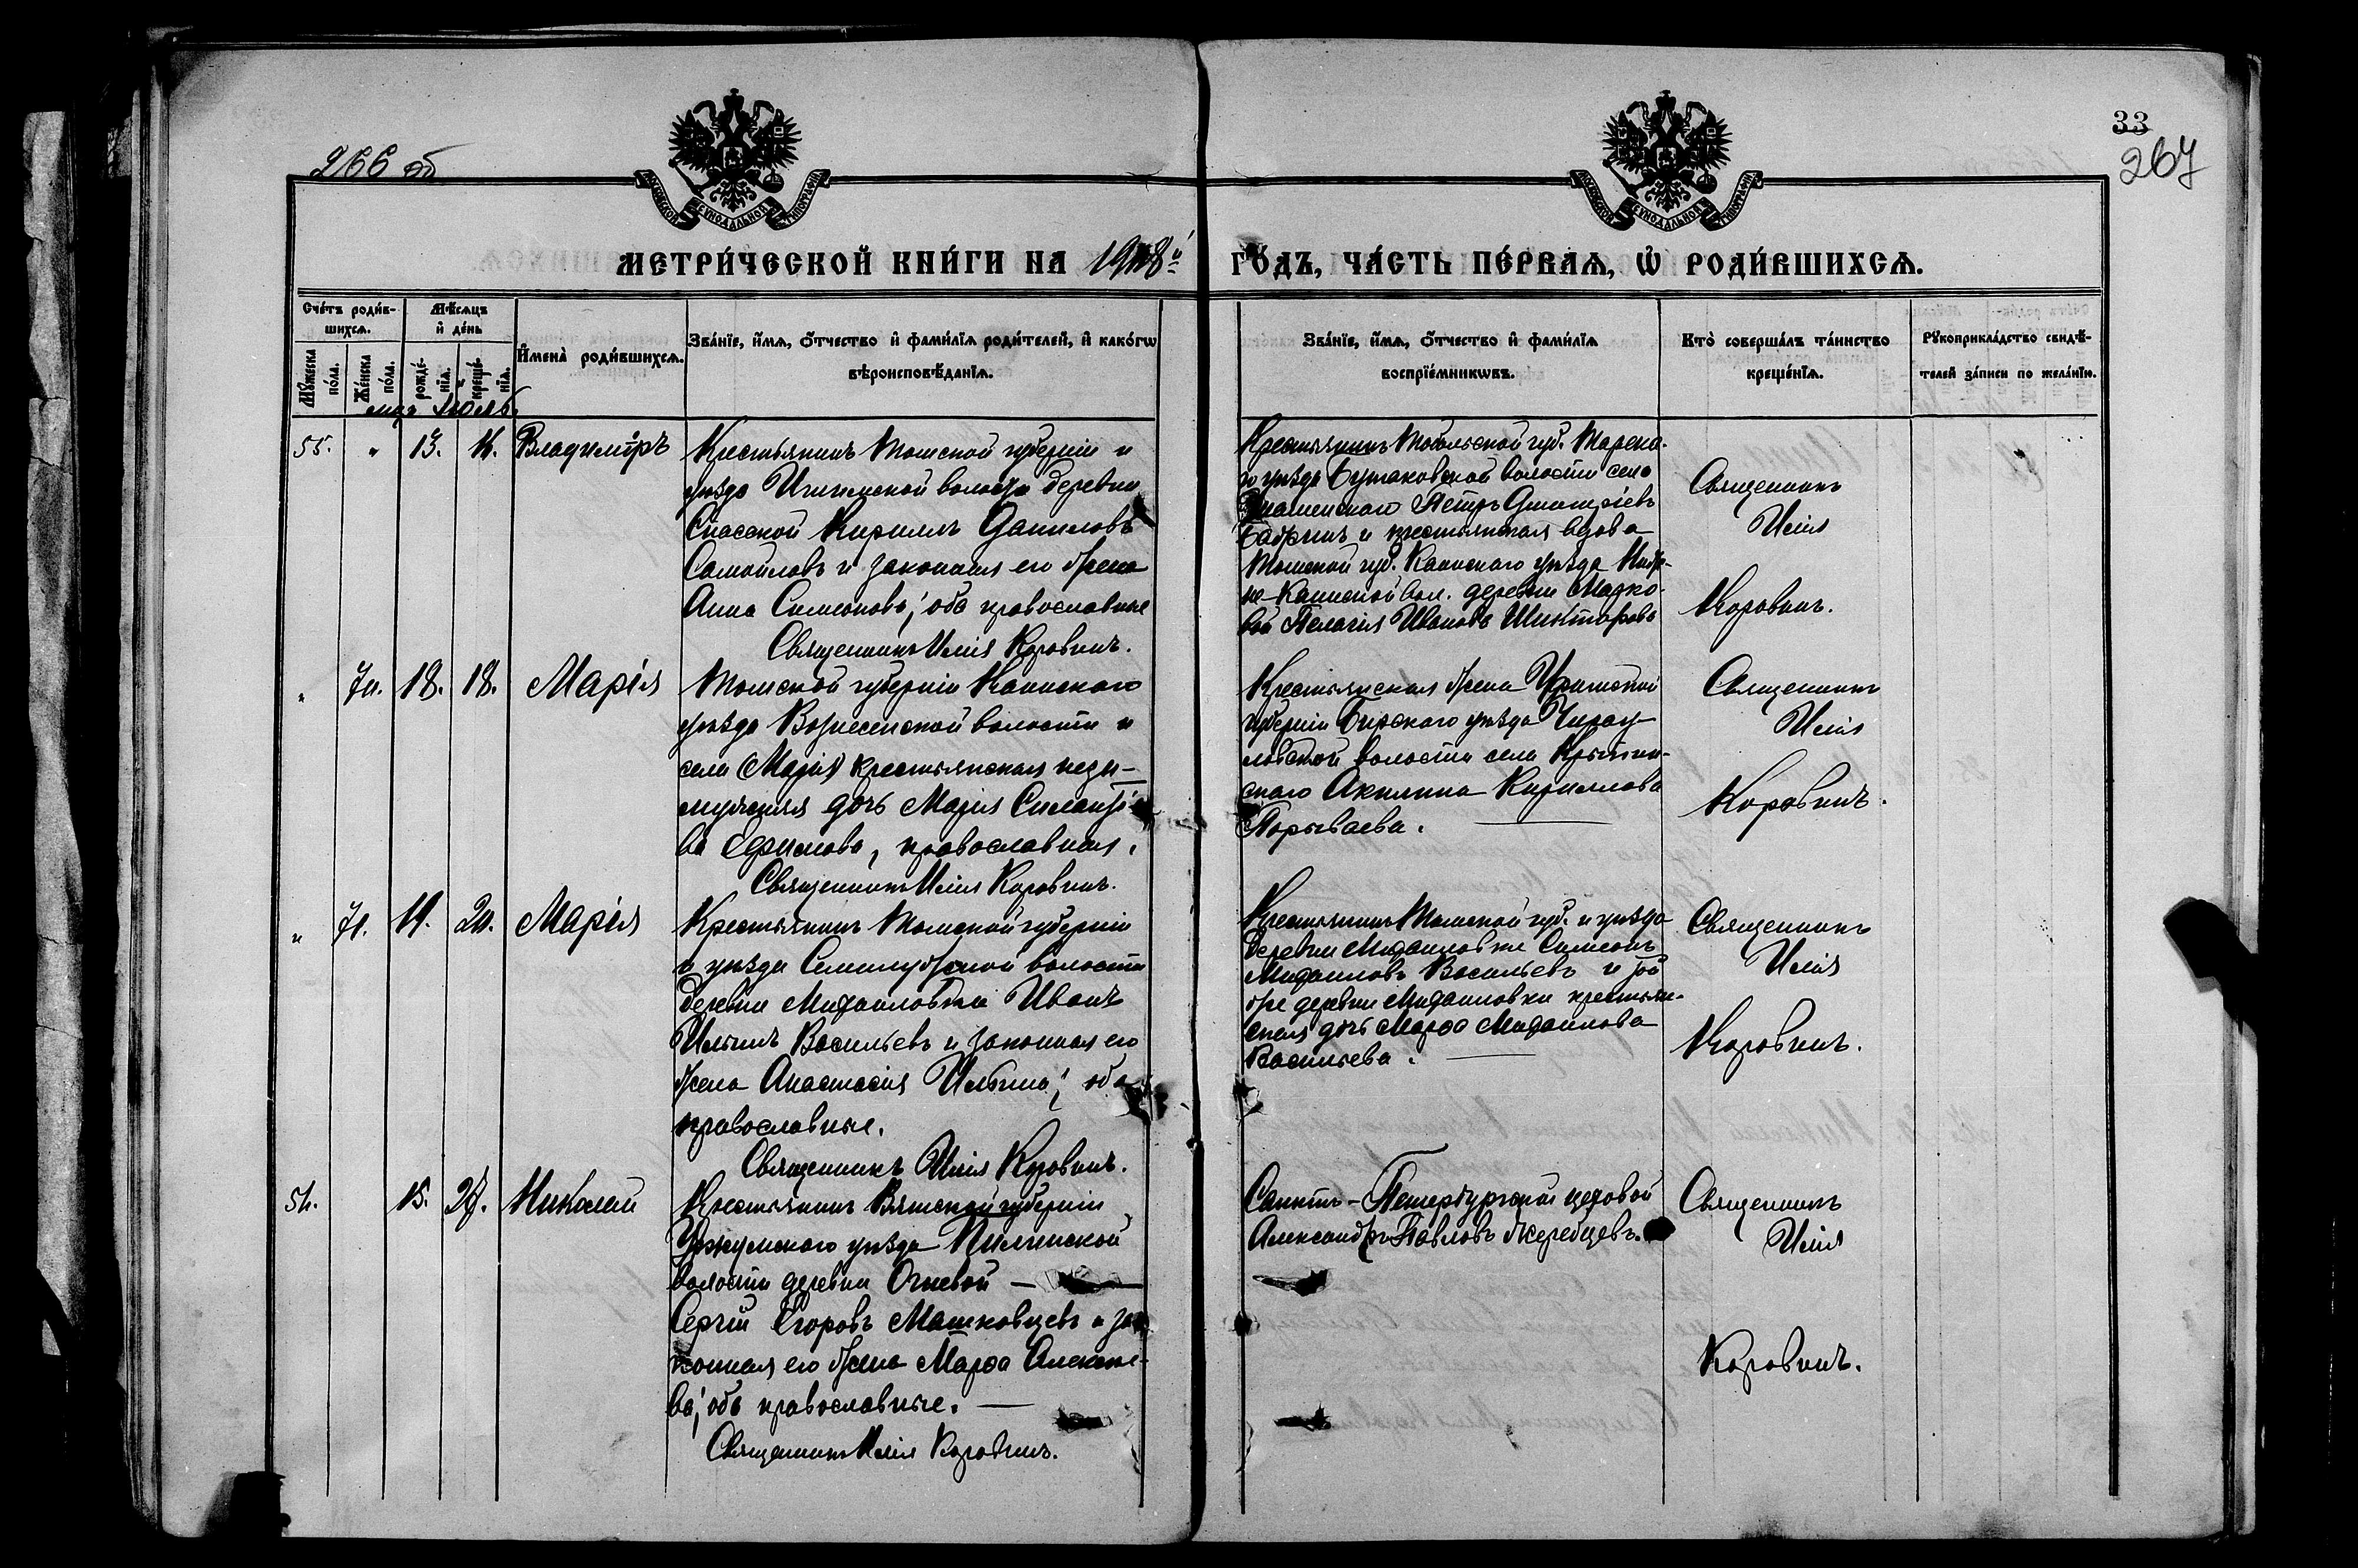 266 об
33
267
МОСКОВСКОЙ СѴНОДАЛЬНОЙ ТИПОГРАФІИ
МОСКОВСКОЙ СѴНОДАЛЬНОЙ ТИПОГРАФІИ
МЕТРИ́ЧЕСКОЙ КНИ́ГИ НА 1908й ГО́ДЪ, ЧА́СТЬ ПЕ́РВАѦ, Ѡ РОДИ́ВШИХСѦ.
Сче́тъ роди́в-
шихсѧ.
Мꙋжеска по́ла.
Же́нска по́ла.
Мѣ́сѧцъ
и де́нь
рожде́-
нїѧ.
креще́-
нїѧ.
И҆мена̀ роди́вшихсѧ.
Зва́нїе, и҆́мѧ, ѻ҆́тчество и҆ фами́лїѧ роди́телей, и҆ како́гѡ
вѣ́роисповѣ́данїѧ.
Зва́нїе, и҆́мѧ, ѻ҆́тчество и҆ фами́лїѧ
воспрїе́мникѡвъ.
Кто̀ соверша́лъ та́инство
креще́нїѧ.
Рꙋкоприкла́дство свидѣ́-
телей за́писи по жела́нїю.
мца Іюль
55. " 13. 16. Владиміръ
Крестьянинъ Томской губерніи и
уѣзда волости деревни
Спасской Кириллъ Даниловъ
Самойловъ и законная его жена
Анна Симеонова; оба православные
Священникъ Илія Коровинъ.
Крестьянинъ Тобольской губ. Тарска-
го уѣзда Бутаковской волости села
Знаменскаго Петръ Димитріевъ
и крестьянская вдова
Томской губ. Каинскаго уѣзда Ниж-
не-Каинской вол. деревни
вой Пелагія Иванова
Священникъ
Илія
Коровинъ.
" 70. 18. 18. Марія
Томской губерніи Каинскаго
уѣзда Вознесенской волости и
села Марія крестьянская неза-
мужняя дочь Марія
ва Ефимова, православная.
Священникъ Илія Коровинъ.
Крестьянская жена Уфимской
губерніи Бирскаго уѣзда
ловской волости села
скаго Акилина Кириллова
Порываева.
Священникъ
Илія
Коровинъ.
" 71. 19. 20. Марія
Крестьянинъ Томской губерніи
и уѣзда Семилужской волости
деревни Михайловки Иванъ
Ильинъ Васильевъ и законная его
жена Анастасія Ильина; оба
православные.
Священникъ Илія Коровинъ.
Крестьянинъ Томской губ. и уѣзда
деревни Михайловки Симеонъ
Михаиловъ Васильевъ и той
же деревни Михайловки крестьян-
ская дочь Марѳа Михаилова
Васильева.
Священникъ
Илія
Коровинъ.
56. 15. 27. Николай
Крестьянинъ Вятской губерніи
Уржумскаго уѣзда Пилинской
волости деревни Огневой
Сергій Егоровъ Машковцевъ и за-
конная его жена Марѳа Алексѣе-
ва; оба православные.
Священникъ Илія Коровинъ.
Санктъ-Петербургскій цеховой
Александръ Павловъ Жеребцевъ.
Священникъ
Илія
Коровинъ.